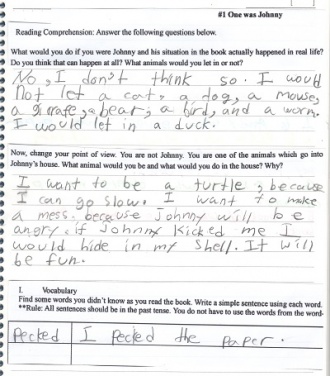 #1 One was Johnny
Reading Comprehension: Answer the following questions below.
What would you do if you were Johnny and his situation in the book actually happened in real life?
Do you think that can happen at all? What animals would you let in or not?
No, I don't think so. I would
not let a cat, a dog, a mouse,
a girafe, a bear, a bird, and a worm.
I would let in a duck.
Now, change your point of view. You are not Johnny. You are one of the animals which go into
Johnny's house. What animal would you be and what would you do in the house? Why?
I want to be a turtle, because
I can go slow. I want to make
a mess. because Johnny will be
angry. if Johnny kicked me I
would hide in my shell. It will
be fun.
I. Vocabulary
Find some words you didn't know as you read the book. Write a simple sentence using each word.
**Rule: All sentences should be in the past tense. You do not have to use the words from the word
Pecked I Pecked the paper.